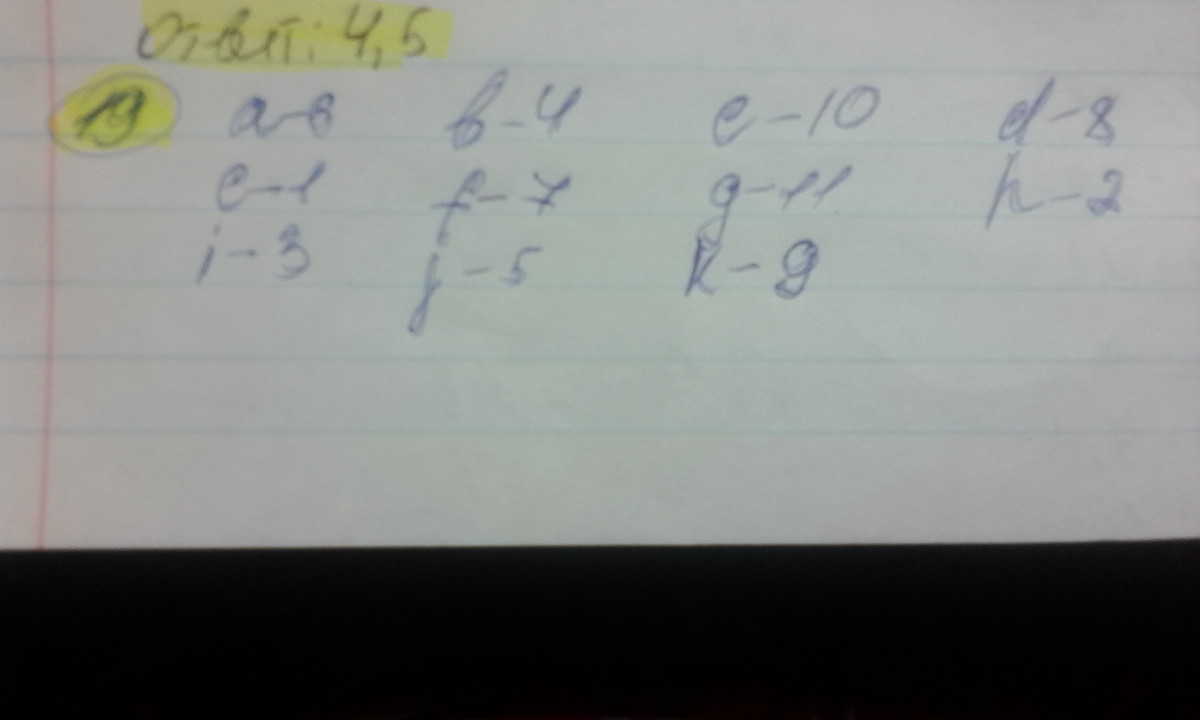 Ответ: 4,5
19 a-6 b-4 c-10 d-8
e-1 f-7 g-11 h-2
i-3 j-5 k-9